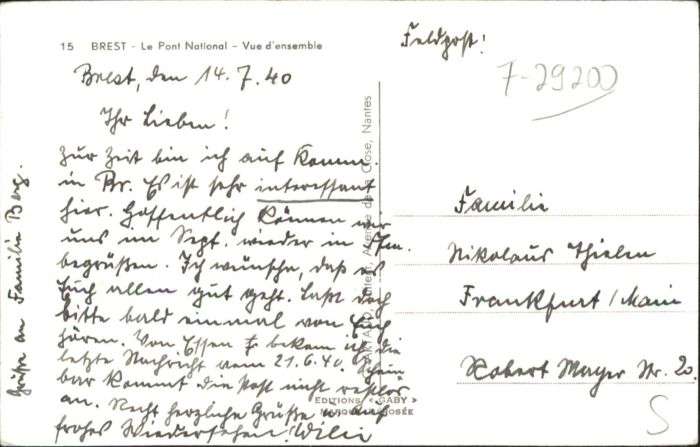 15 BREST - Le Pont National - Vue d'ensemble
Brest, den 14.7.40
Ihr Lieben!
Zur Zeit bin ich auf Komm.
in Br. Es ist sehr interessant
hier. Hoffentlich können wir
uns im Sept. wieder in
begrüßen. Ich wünsche, daß es
Euch allen gut geht. Laßt doch
bitte bald einmal von Euch
hören. Von Essen bekam ich die
letzte Nachricht vom 21.6.40. Schein
bar kommt die Post nicht restlos
an. Recht herzliche Grüße u. auf
frohes Wiedersehen! Willi
Grüße an Familie Berg.
EDITIONS « GABY »
MARQUE DÉPOSÉE
Nantes
Feldpost!
7-29200
Familie
Nikolaus Thielen
Frankfurt/Main
Robert Mayer Str. 20.
S